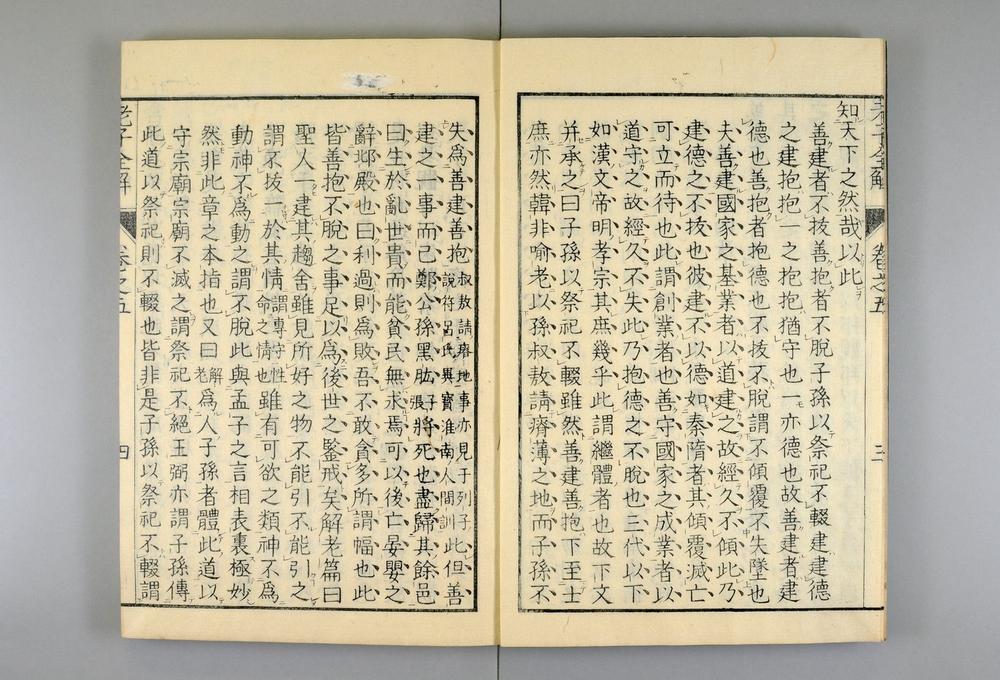 老子全解
卷之五
三
知天下之然哉以此
善建者不拔善抱者不脫子孫以祭祀不輟建建德
之建抱抱一之抱抱猶守也一亦德也故善建者建
德也善抱者抱德也不拔不脫謂不傾覆不失墜也
夫善建國家之基業者以道建之故經久不傾此乃
建德之不拔也彼建不以德如秦隋者其傾覆滅亡
可立而待也此謂創業者也善守國家之成業者以
道守之故經久不失此乃抱德之不脫也三代以下
如漢文帝明孝宗其庶幾乎此謂繼體者也故下文
并承之曰子孫以祭祀不輟雖然善建善抱下至士
庶亦然韓非喻老以孫叔敖請瘠薄之地而子孫不
失爲善建善抱叔敖請瘠地事亦見于列子說符呂氏異寶淮南人間訓此但善
建之一事而已鄭公孫黑肱子張將死也盡歸其餘邑
曰生於亂世貴而能貧民無求焉可以後亡晏嬰之
辭邶殿也曰利過則爲敗吾不敢貪多所謂幅也此
皆善抱不脫之事足以爲後世之鑒戒矣解老篇曰
聖人一建其趨舍雖見所好之物不能引不能引之
謂不拔一於其情謂專守性命之情也雖有可欲之類神不爲
動神不爲動之謂不脫此與孟子之言相表裏極妙
然非此章之本指也又曰解老爲人子孫者體此道以
守宗廟宗廟不滅之謂祭祀不絕王弼亦謂子孫傳
此道以祭祀則不輟也皆非是子孫以祭祀不輟謂
老子全解
卷之五
四